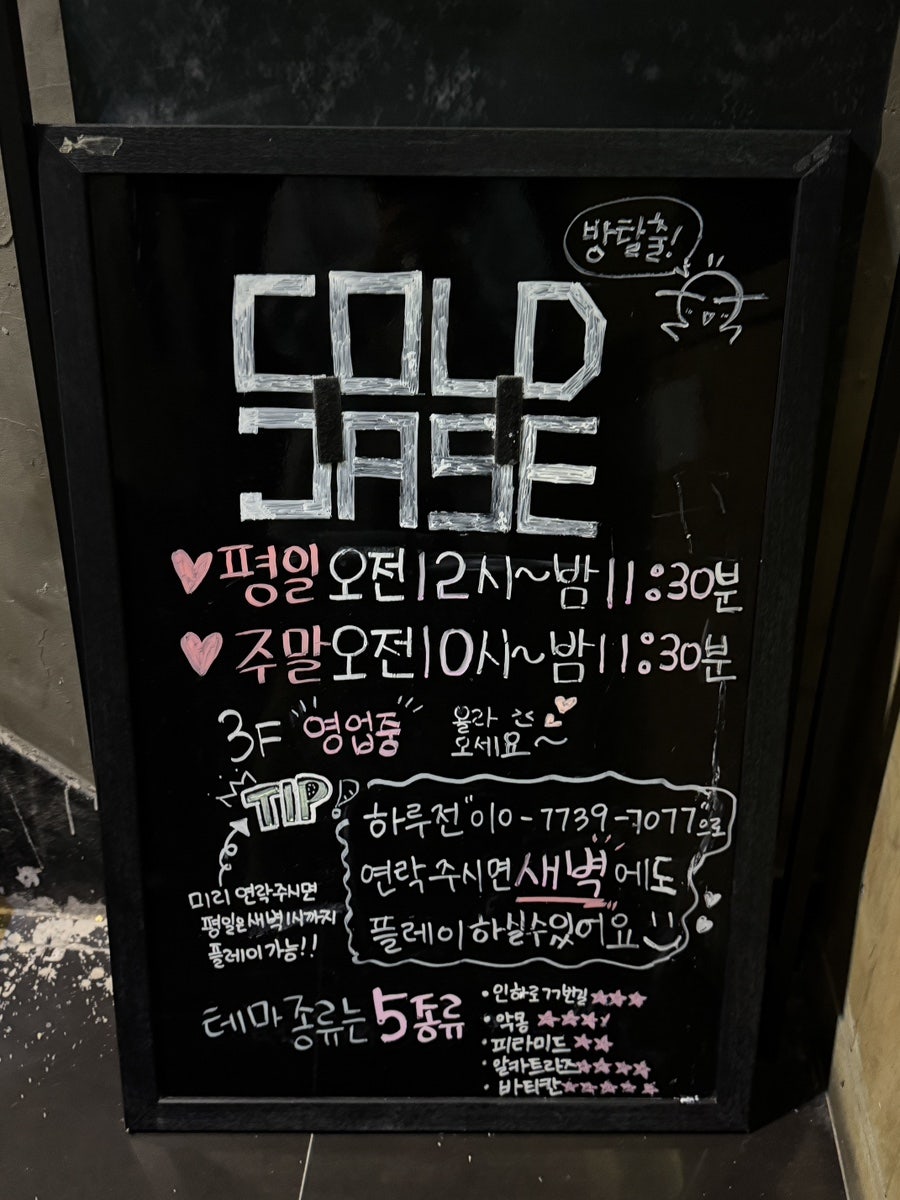 방탈출!
COLD
CASE
평일 오전 12시~밤 11:30분
주말 오전 10시~밤 11:30분
3F 영업중 올라오세요~
TIP
하루전 "010-7739-7077"으로
연락주시면 새벽에도
플레이하실수있어요
미리 연락주시면
평일은 새벽1시까지
플레이 가능!!
테마종류는 5종류
• 인하로77번길 ★★★
• 악몽 ★★★
• 피라미드 ★★
• 알카트라즈 ★★★★
• 바티칸 ★★★★★